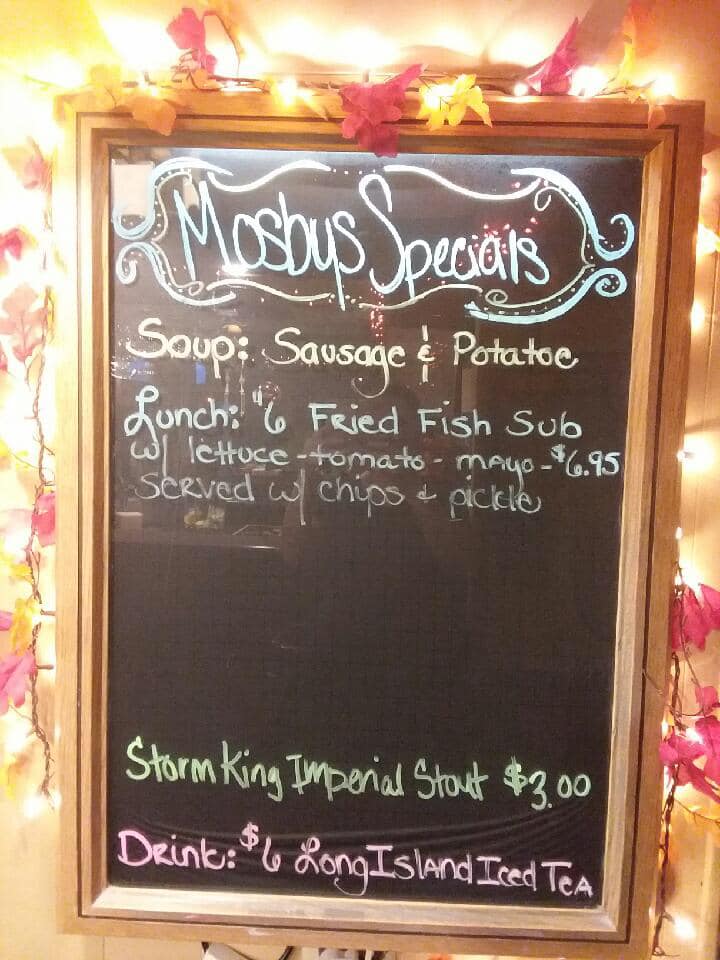 Mosbys Specials
Soup: Sausage & Potatoe
Lunch: 6" Fried Fish Sub
w/ lettuce - tomato - mayo - $6.95
Served w/ chips & pickle
Storm King Imperial Stout $3.00
Drink: $6 Long Island Iced Tea